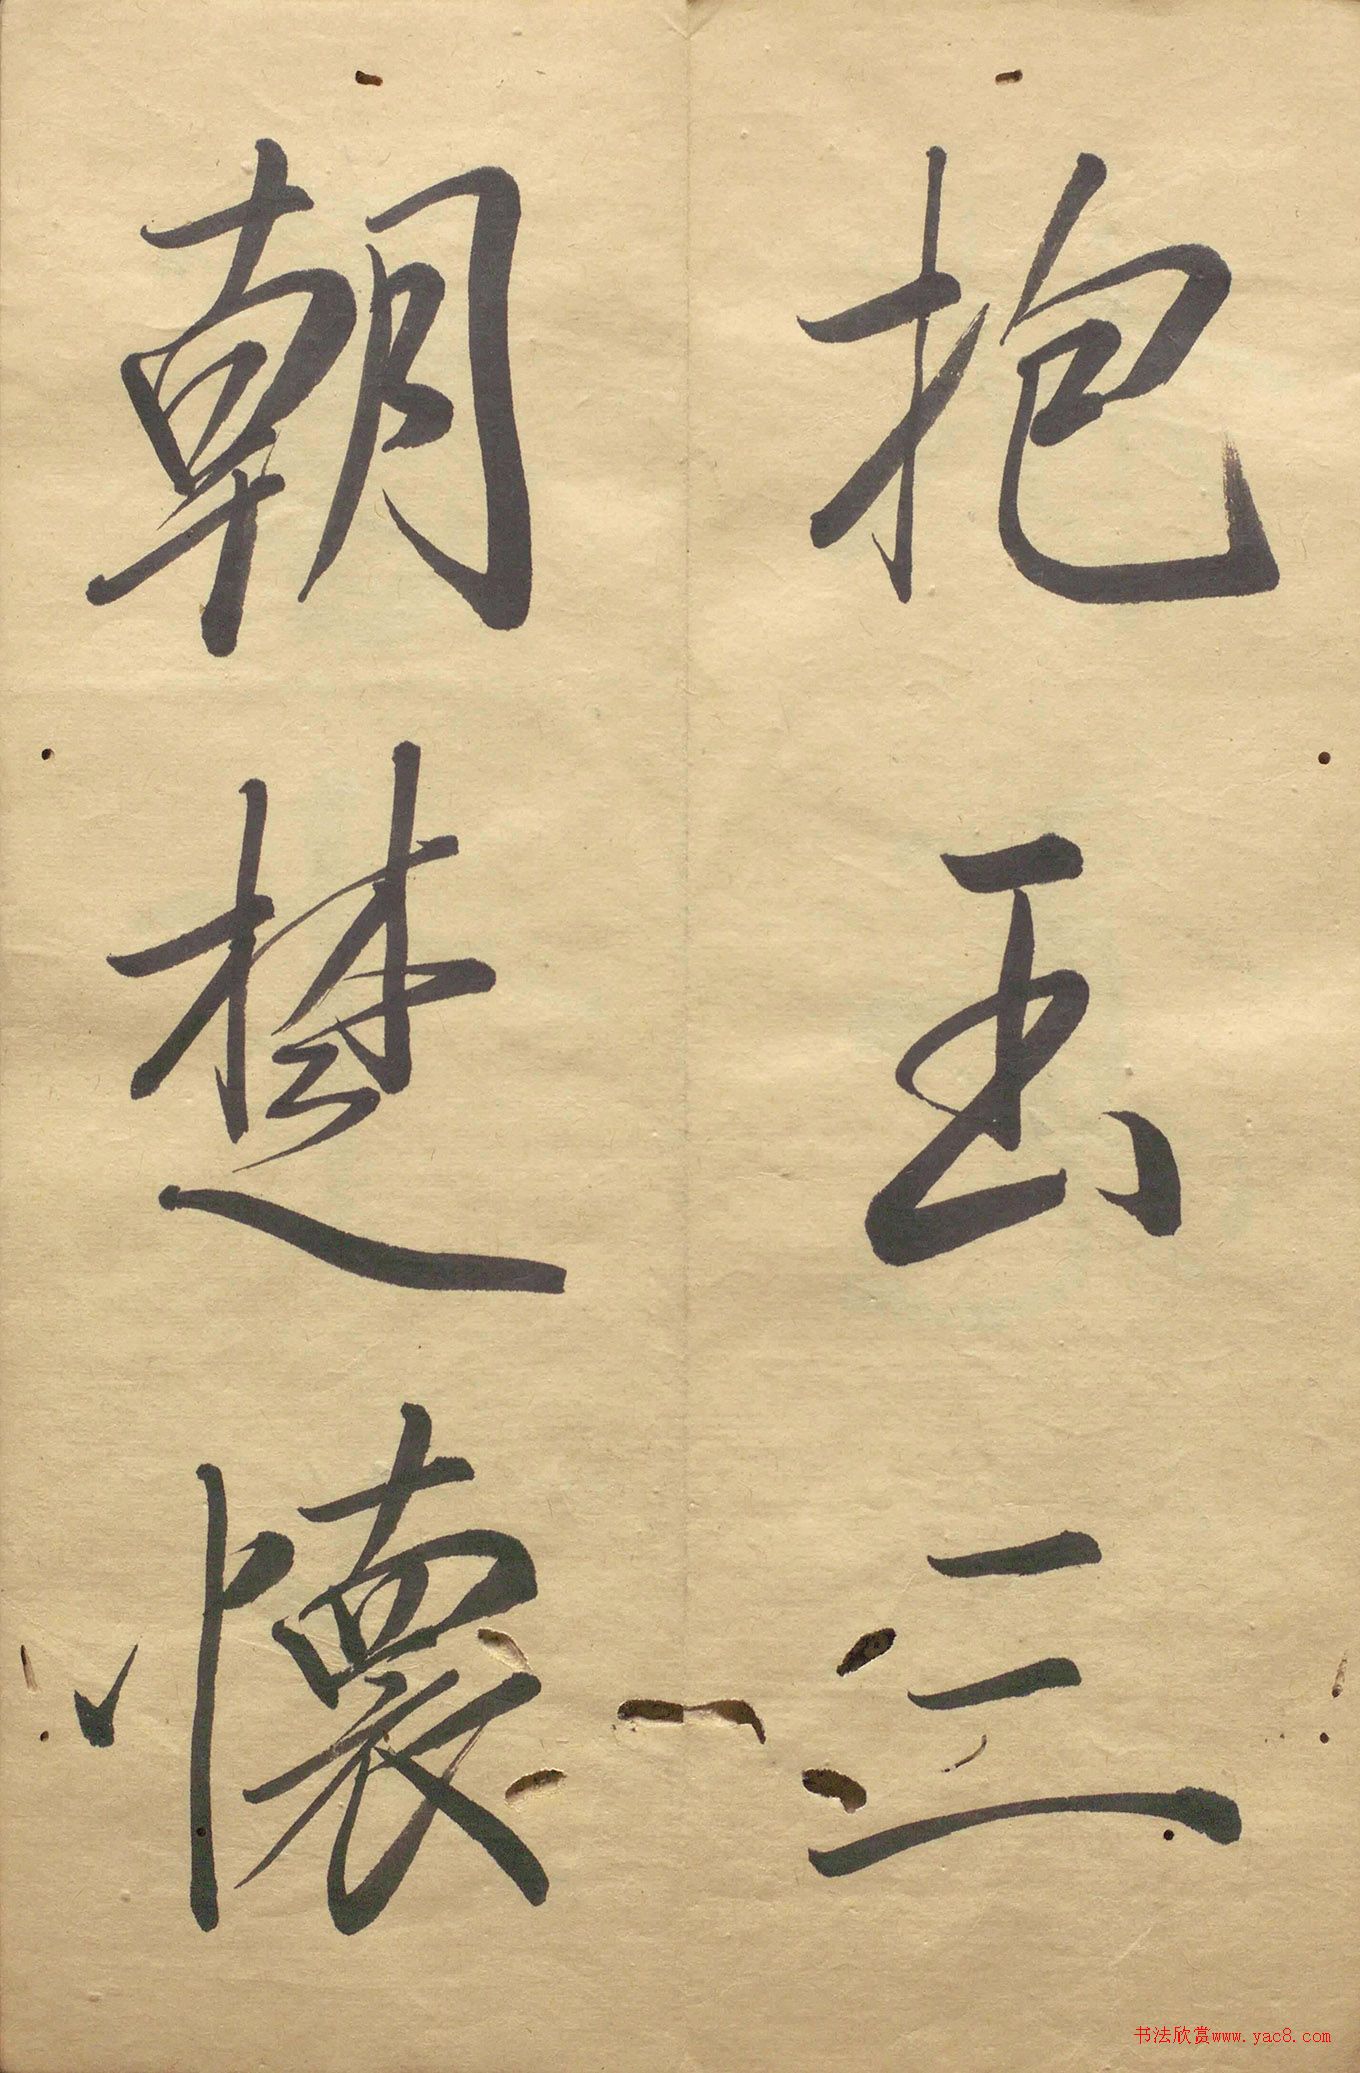 抱玉三
朝楚懷
书法欣赏www.yac8.com